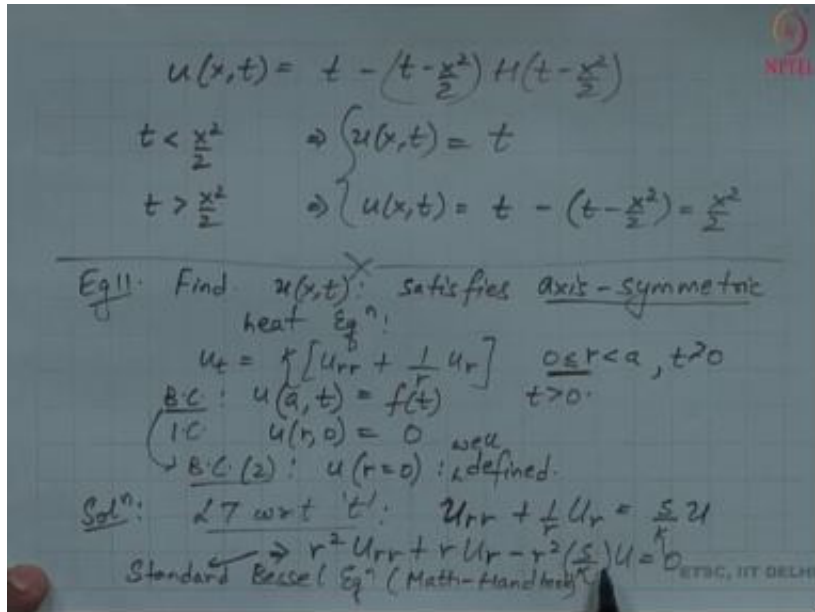 NPTEL
u(x,t) = t - (t - x²/2) H(t - x²/2)
t < x²/2 ⇒ { u(x,t) = t
t > x²/2 ⇒ { u(x,t) = t - (t - x²/2) = x²/2
Eg 11. Find u(x,t): satisfies axis-symmetric
heat Eqⁿ:
u_t = k [u_rr + 1/r u_r] 0 ≤ r < a, t>0
B.C.: u(a,t) = f(t) t>0.
I.C. u(r,0) = 0
B.C.(2): u(r=0): well defined.
Solⁿ: LT wrt 't': U_rr + 1/r U_r = s/k U
⇒ r² U_rr + r U_r - r² (s/k) U = 0
Standard Bessel Eqⁿ (Math-Handbook
ETSC, IIT DELHI